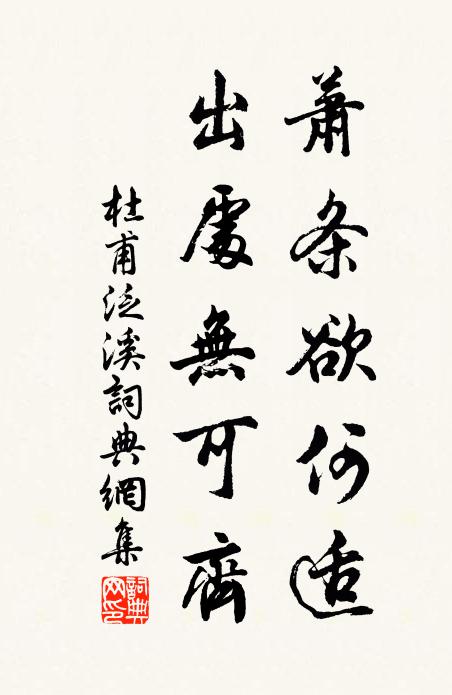 蕭条欲何适
出處無可齊
杜甫泛溪詞典網集
詞典網印